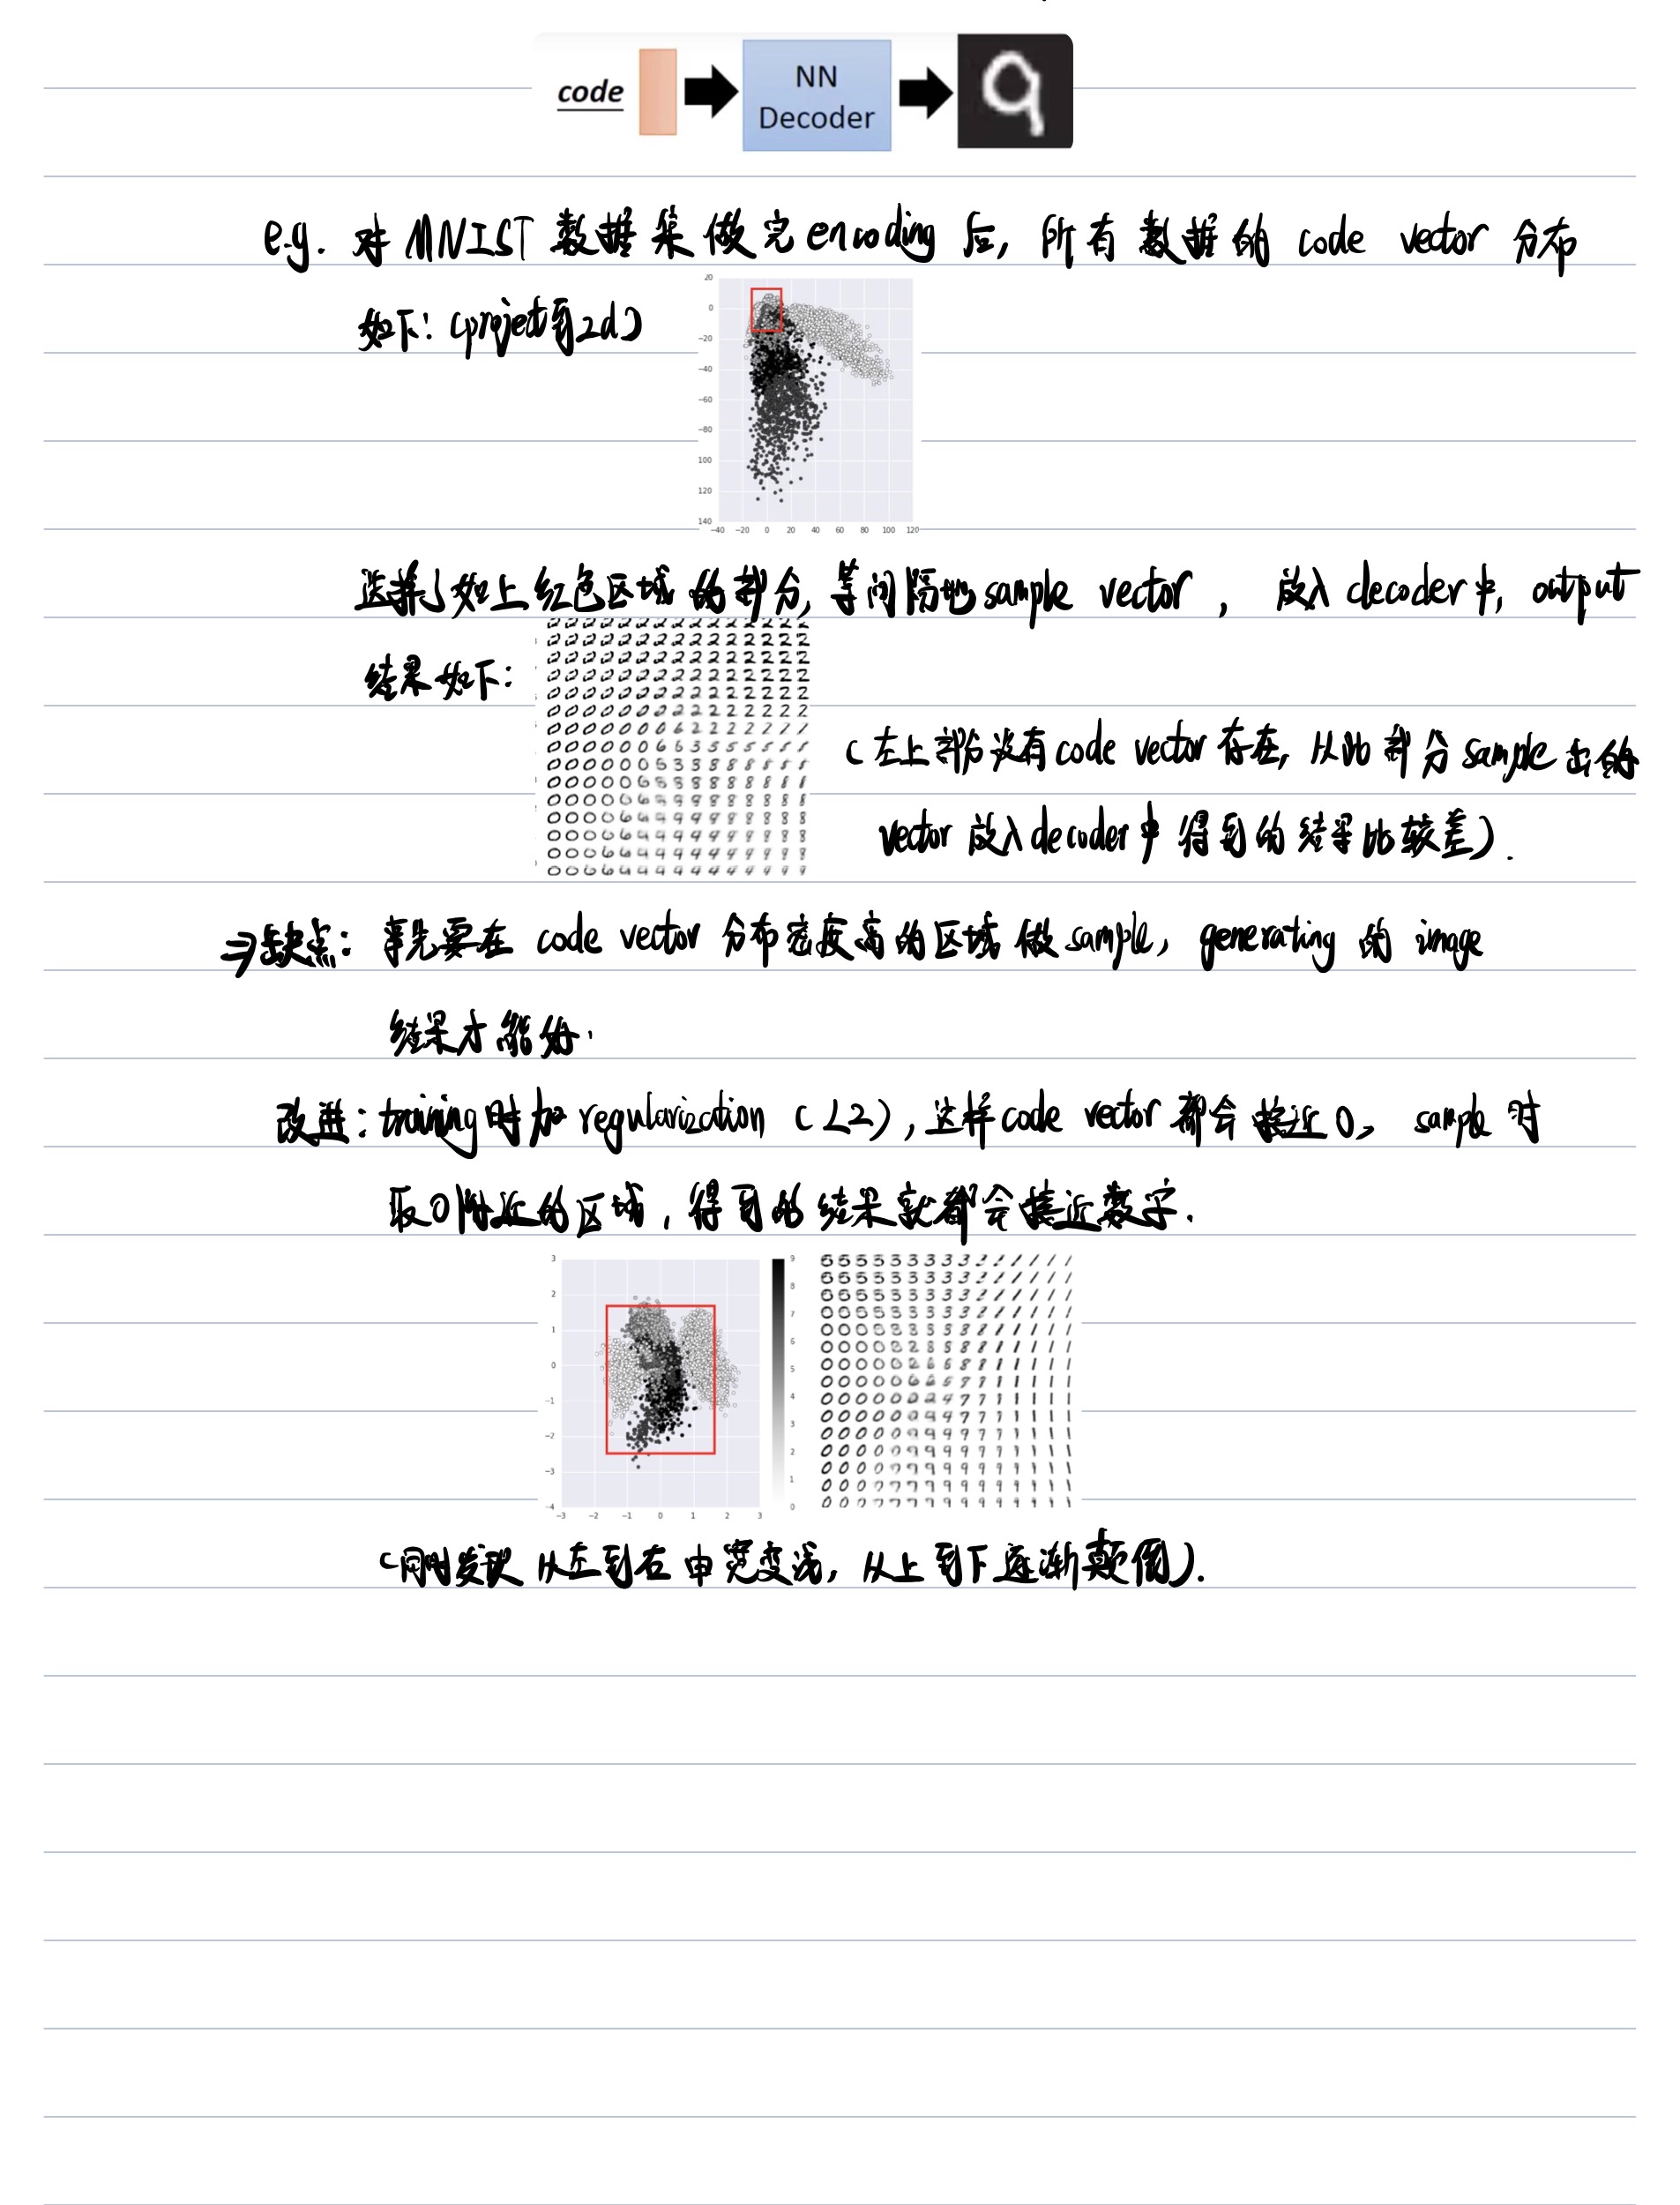 code
NN
Decoder
e.g. 对 MNIST 数据集做完encoding 后, 所有数据的 code vector 分布
如下: (project到2d)
20
0
−20
−40
−60
−80
100
120
140
−40 −20 0 20 40 60 80 100 120
选择了如上红色区域的部分, 等间隔地sample vector, 放入decoder中, output
结果如下:
(左上部分没有code vector存在, 从此部分sample出的
vector放入decoder中得到的结果比较差).
⇒缺点: 事先要在 code vector 分布密度高的区域做sample, generating 的 image
结果才能好.
改进: training时加 regularization (L2), 这样code vector 都会接近0, sample 时
取0附近的区域, 得到的结果就都会接近数字.
3
2
1
0
−1
−2
−3
−4
−3 −2 −1 0 1 2 3
9
8
7
6
5
4
3
2
1
0
(同时发现 从左到右由宽变浅, 从上到下逐渐颠倒).